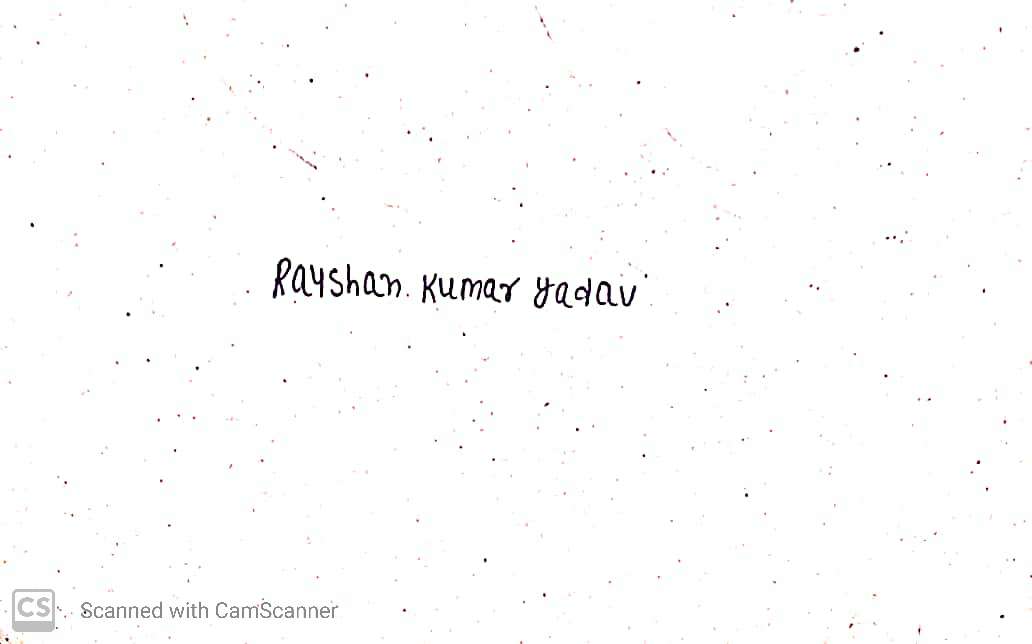 Rayshan. Kumar yadav
CS Scanned with CamScanner